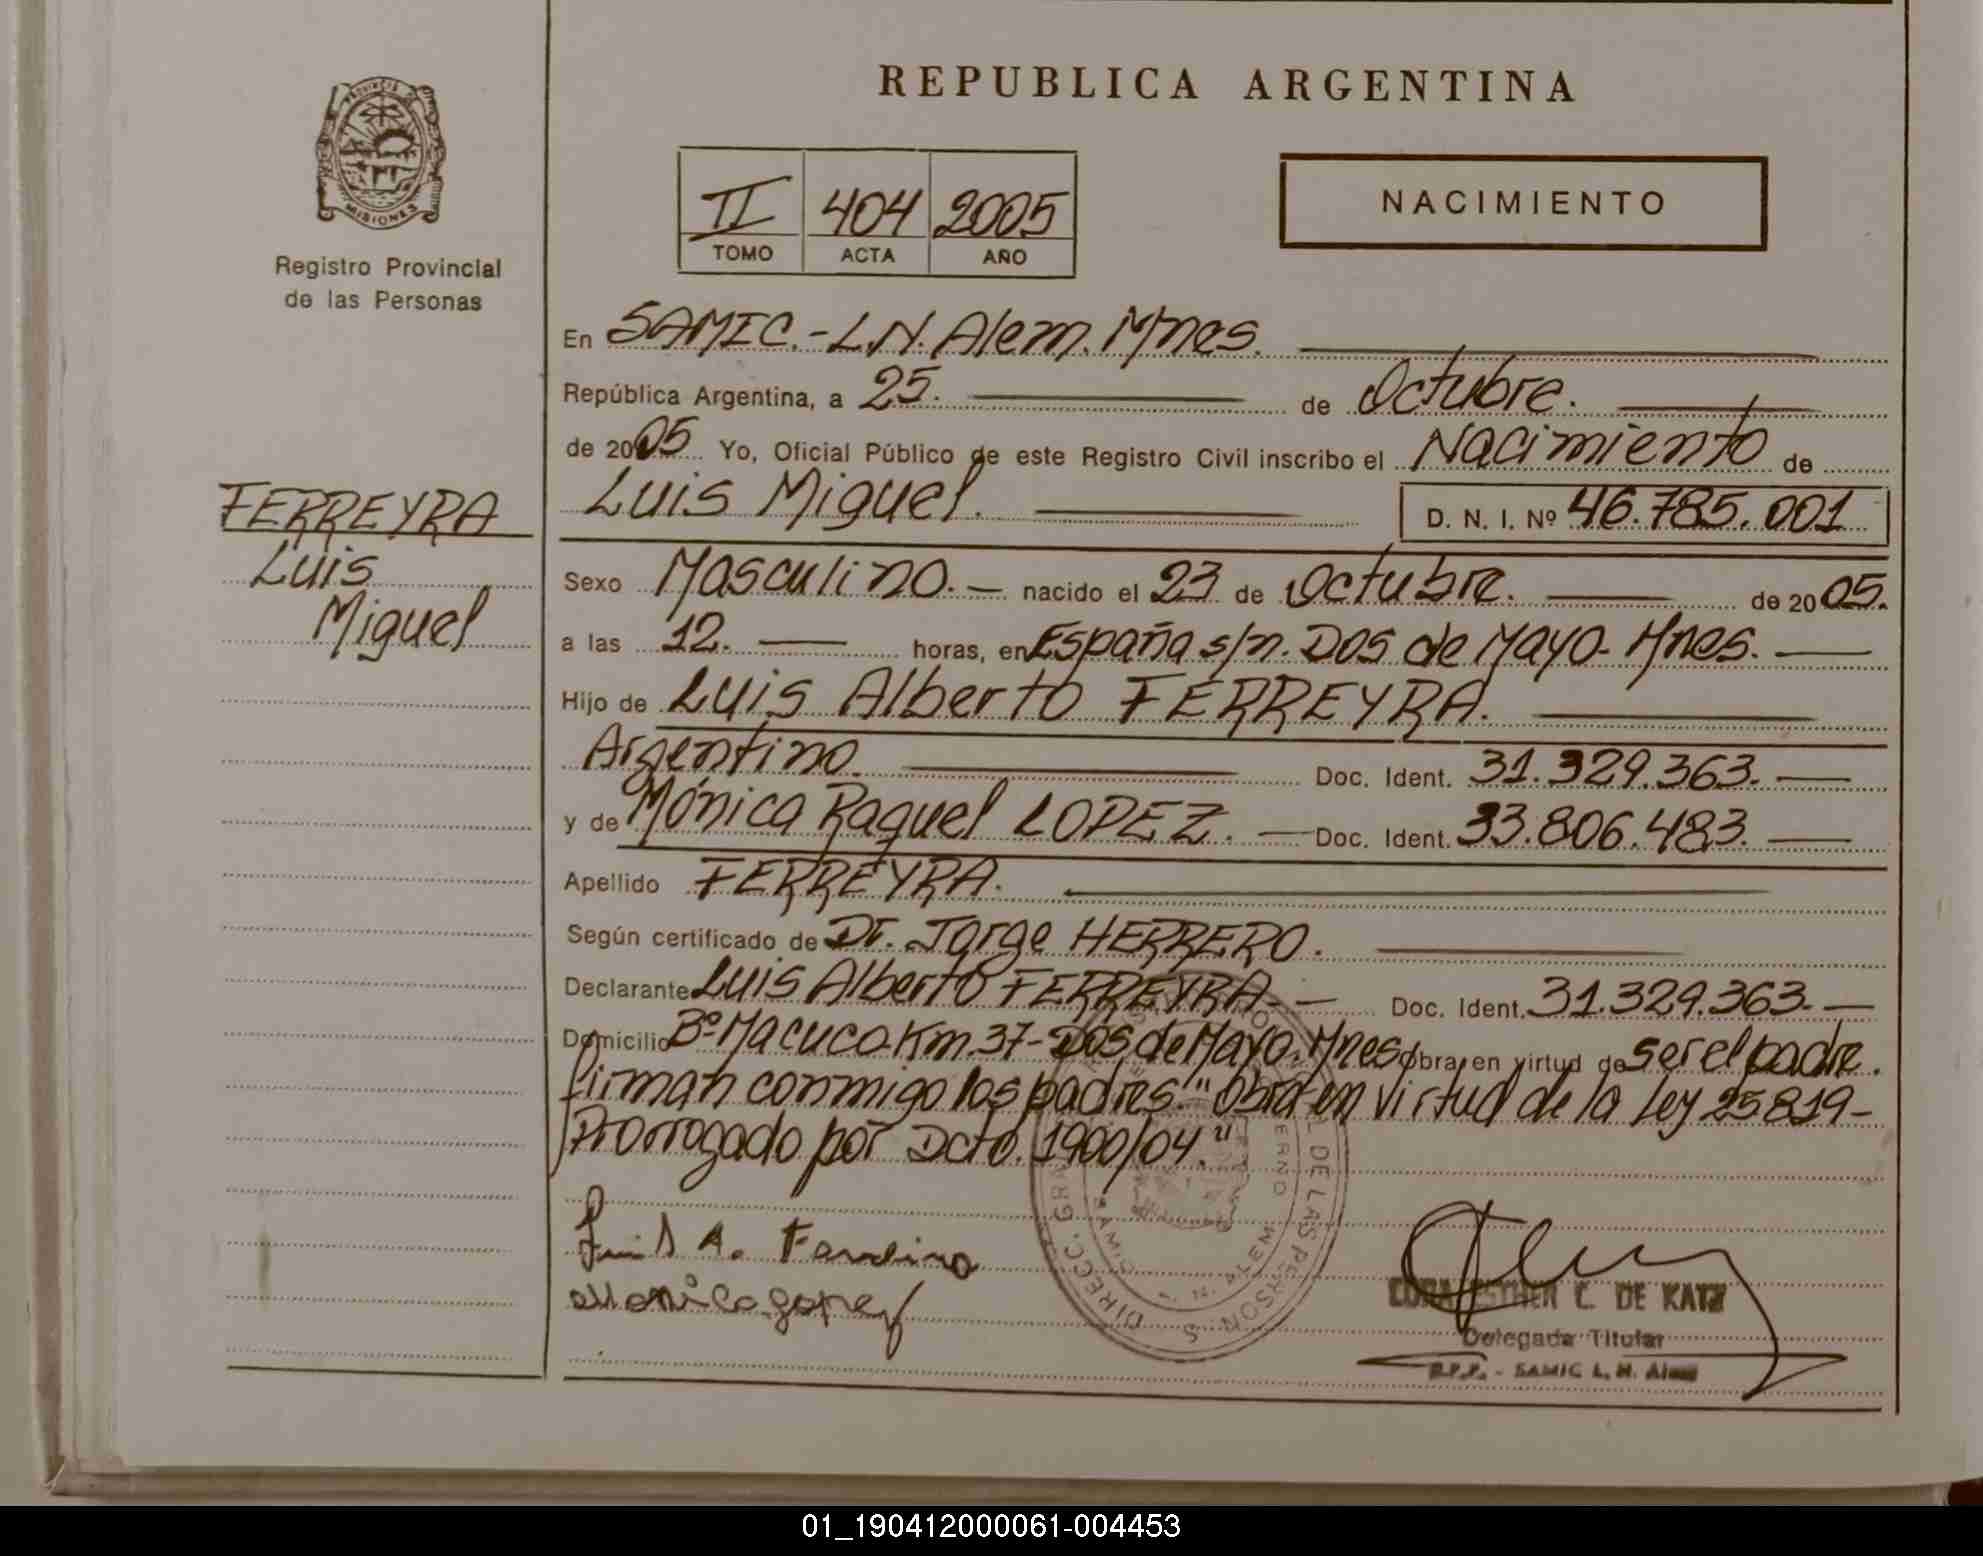 REPUBLICA ARGENTINA
MISIONES
Registro Provincial
de las Personas
II 404 2005
TOMO ACTA AÑO
NACIMIENTO
FERREYRA
Luis
Miguel
En SAMIC.-L.N. Alem. Mnes.
República Argentina, a 25. de Octubre.
de 2005 Yo, Oficial Público de este Registro Civil inscribo el Nacimiento de
Luis Miguel. D. N. I. Nº 46.785.001
Sexo Masculino.- nacido el 23 de Octubre. de 2005.
a las 12. horas, en España s/n. Dos de Mayo- Mnes.
Hijo de Luis Alberto FERREYRA.
Argentino. Doc. Ident. 31.329.363.
y de Mónica Raquel LOPEZ. Doc. Ident. 33.806.483.
Apellido FERREYRA.
Según certificado de Dr. Jorge HERRERO.
Declarante Luis Alberto FERREYRA.- Doc. Ident. 31.329.363.-
Domicilio Bº Macuco-Km.37-Dos de Mayo. Mnes obra en virtud de ser el padre.
firman conmigo los padres. "obra en virtud de la Ley 25819-
Prorrogado por Dcto. 1900/04."
Luis A. Ferreira
Monica Lopez
ESTHER C. DE KATZ
Delegada Titular
R.P.P. - SAMIC L. N. Alem
01_190412000061-004453